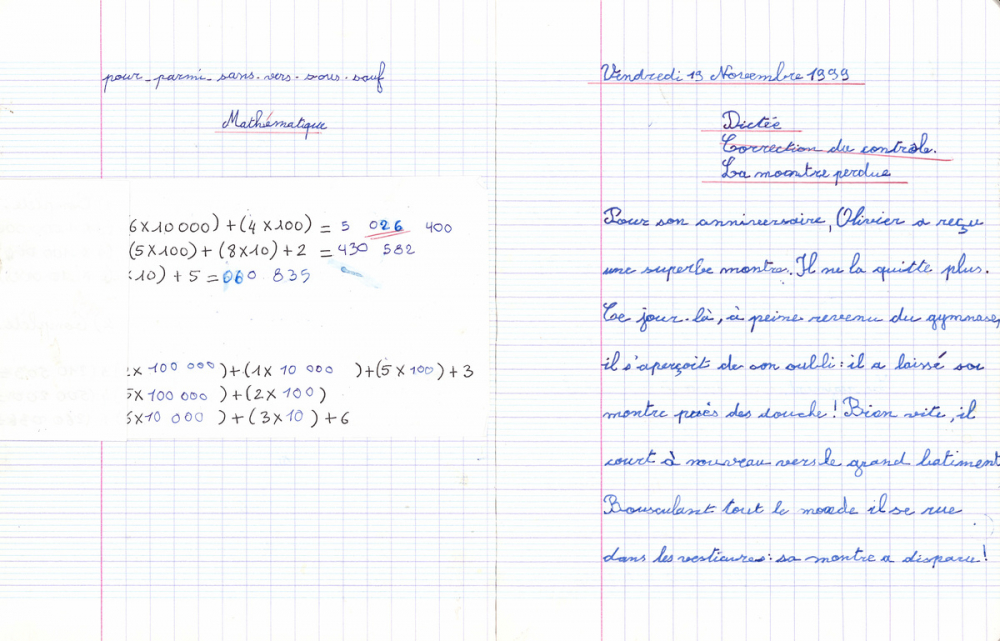 pour - parmi - sans - vers - sous - sauf
Mathématique
6 x 10 000) + (4 x 100) = 5 026 400
(5 x 100) + (8 x 10) + 2 = 430 582
x 10) + 5 = 060 835
x 100 000 ) + (1 x 10 000 ) + (5 x 100) + 3
5 x 100 000 ) + (2 x 100)
5 x 10 000 ) + (3 x 10) + 6
Vendredi 19 Novembre 1999
Dictée
Correction du contrôle.
La montre perdue
Pour son anniversaire, Olivier a reçu
une superbe montre. Il ne la quitte plus.
Ce jour-là, à peine revenu du gymnase,
il s'aperçoit de son oubli : il a laissé sa
montre près des douche ! Bien vite, il
court à nouveau vers le grand batiment
Bousculant tout le monde il se rue
dans les vestiaires : sa montre a disparu !